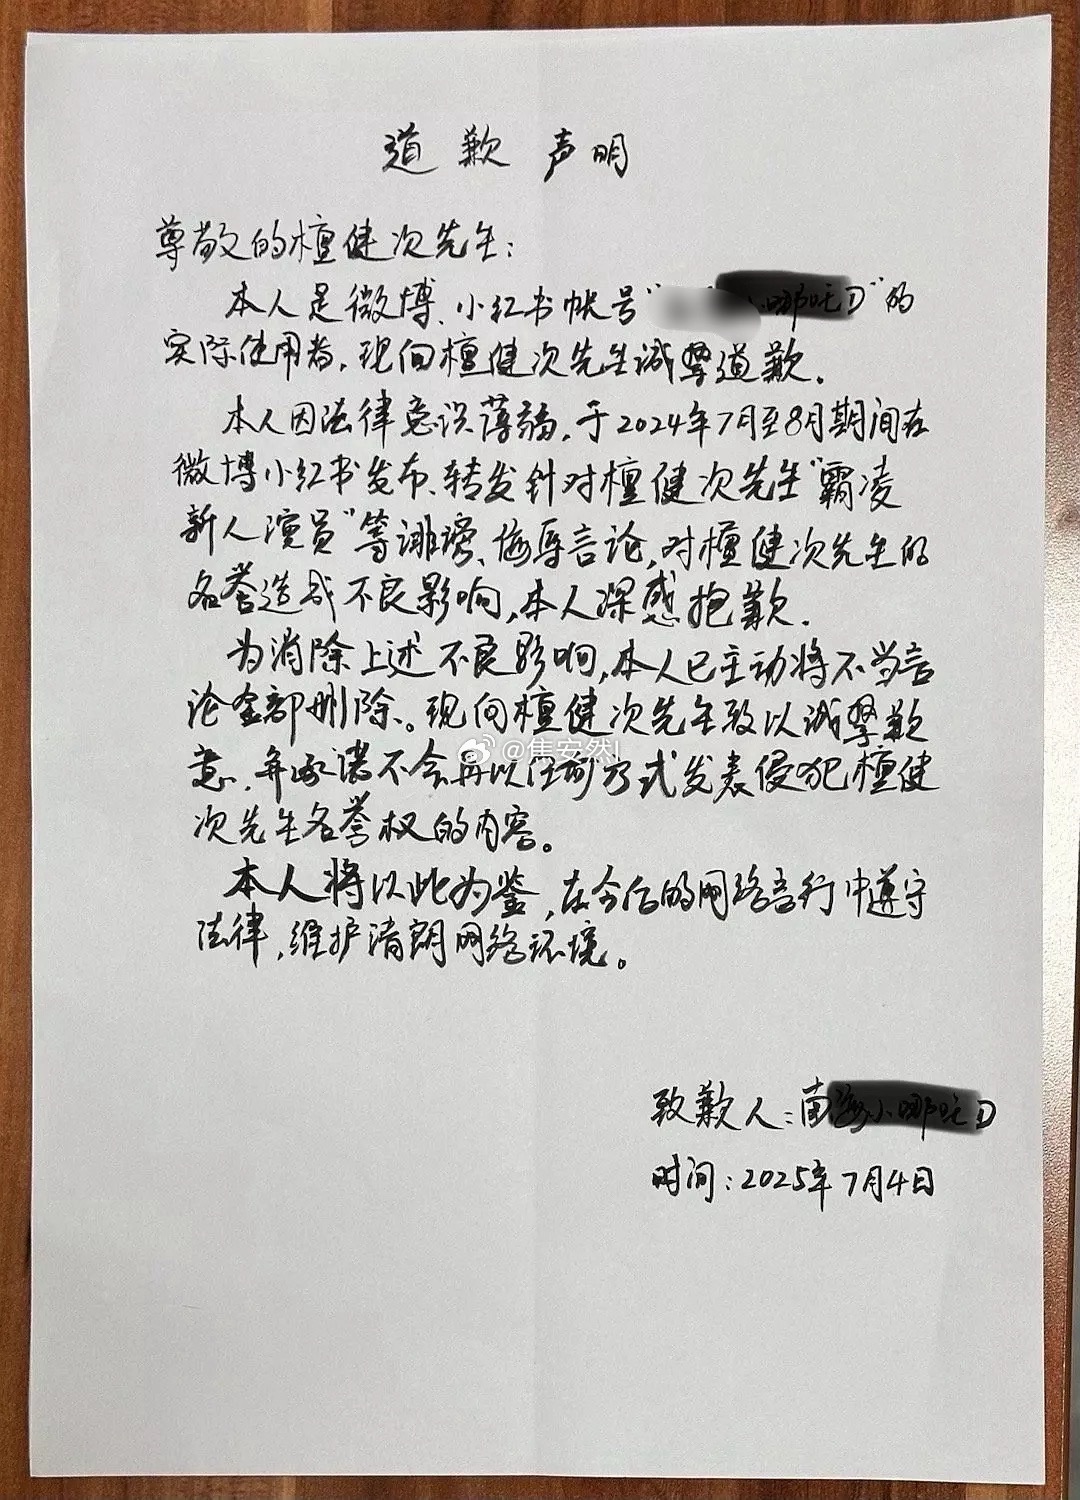 道歉声明
尊敬的檀健次先生：
本人是微博、小红书帐号“ ”的
实际使用者，现向檀健次先生诚挚道歉.
本人因法律意识薄弱，于2024年7月至8月期间在
微博小红书发布、转发针对檀健次先生“霸凌
新人演员”等诽谤、侮辱言论，对檀健次先生的
名誉造成不良影响，本人深感抱歉.
为消除上述不良影响，本人已主动将不当言
论全部删除。现向檀健次先生致以诚挚歉
@焦安然l
意，并承诺不会再以任何方式发表侵犯檀健
次先生名誉权的内容。
本人将以此为鉴，在今后的网络言行中遵守
法律，维护清朗网络环境。
致歉人：南
时间：2025年7月4日